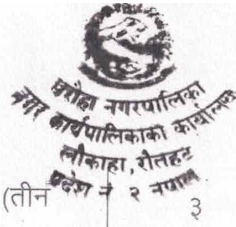 नगरपालिका
नगर कार्यपालिकाको कार्यालय
लौकाहा, रौतहट
प्रदेश नं २ नेपाल
(तीन
३